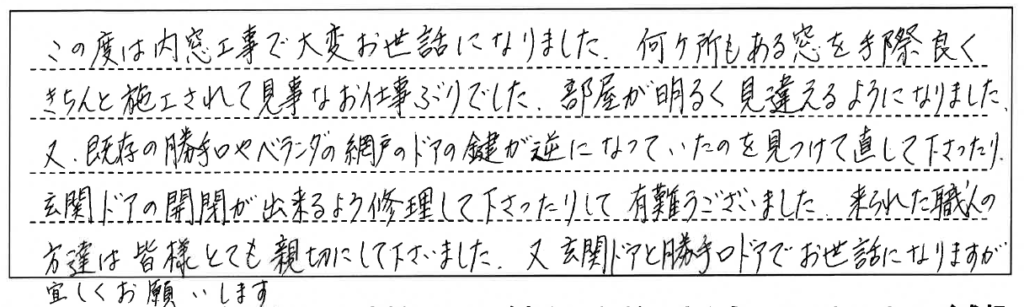 この度は内窓工事で大変お世話になりました. 何ヶ所もある窓を手際良く
きちんと施工されて見事なお仕事ぶりでした. 部屋が明るく見違えるようになりました.
又、既存の勝手口やベランダの網戸のドアの鍵が逆になっていたのを見つけて直して下さったり.
玄関ドアの開閉が出来るよう修理して下さったりして有難うございました. 来られた職人の
方達は皆様とても親切にして下さいました. 又玄関ドアと勝手口ドアでお世話になりますが
宜しくお願いします